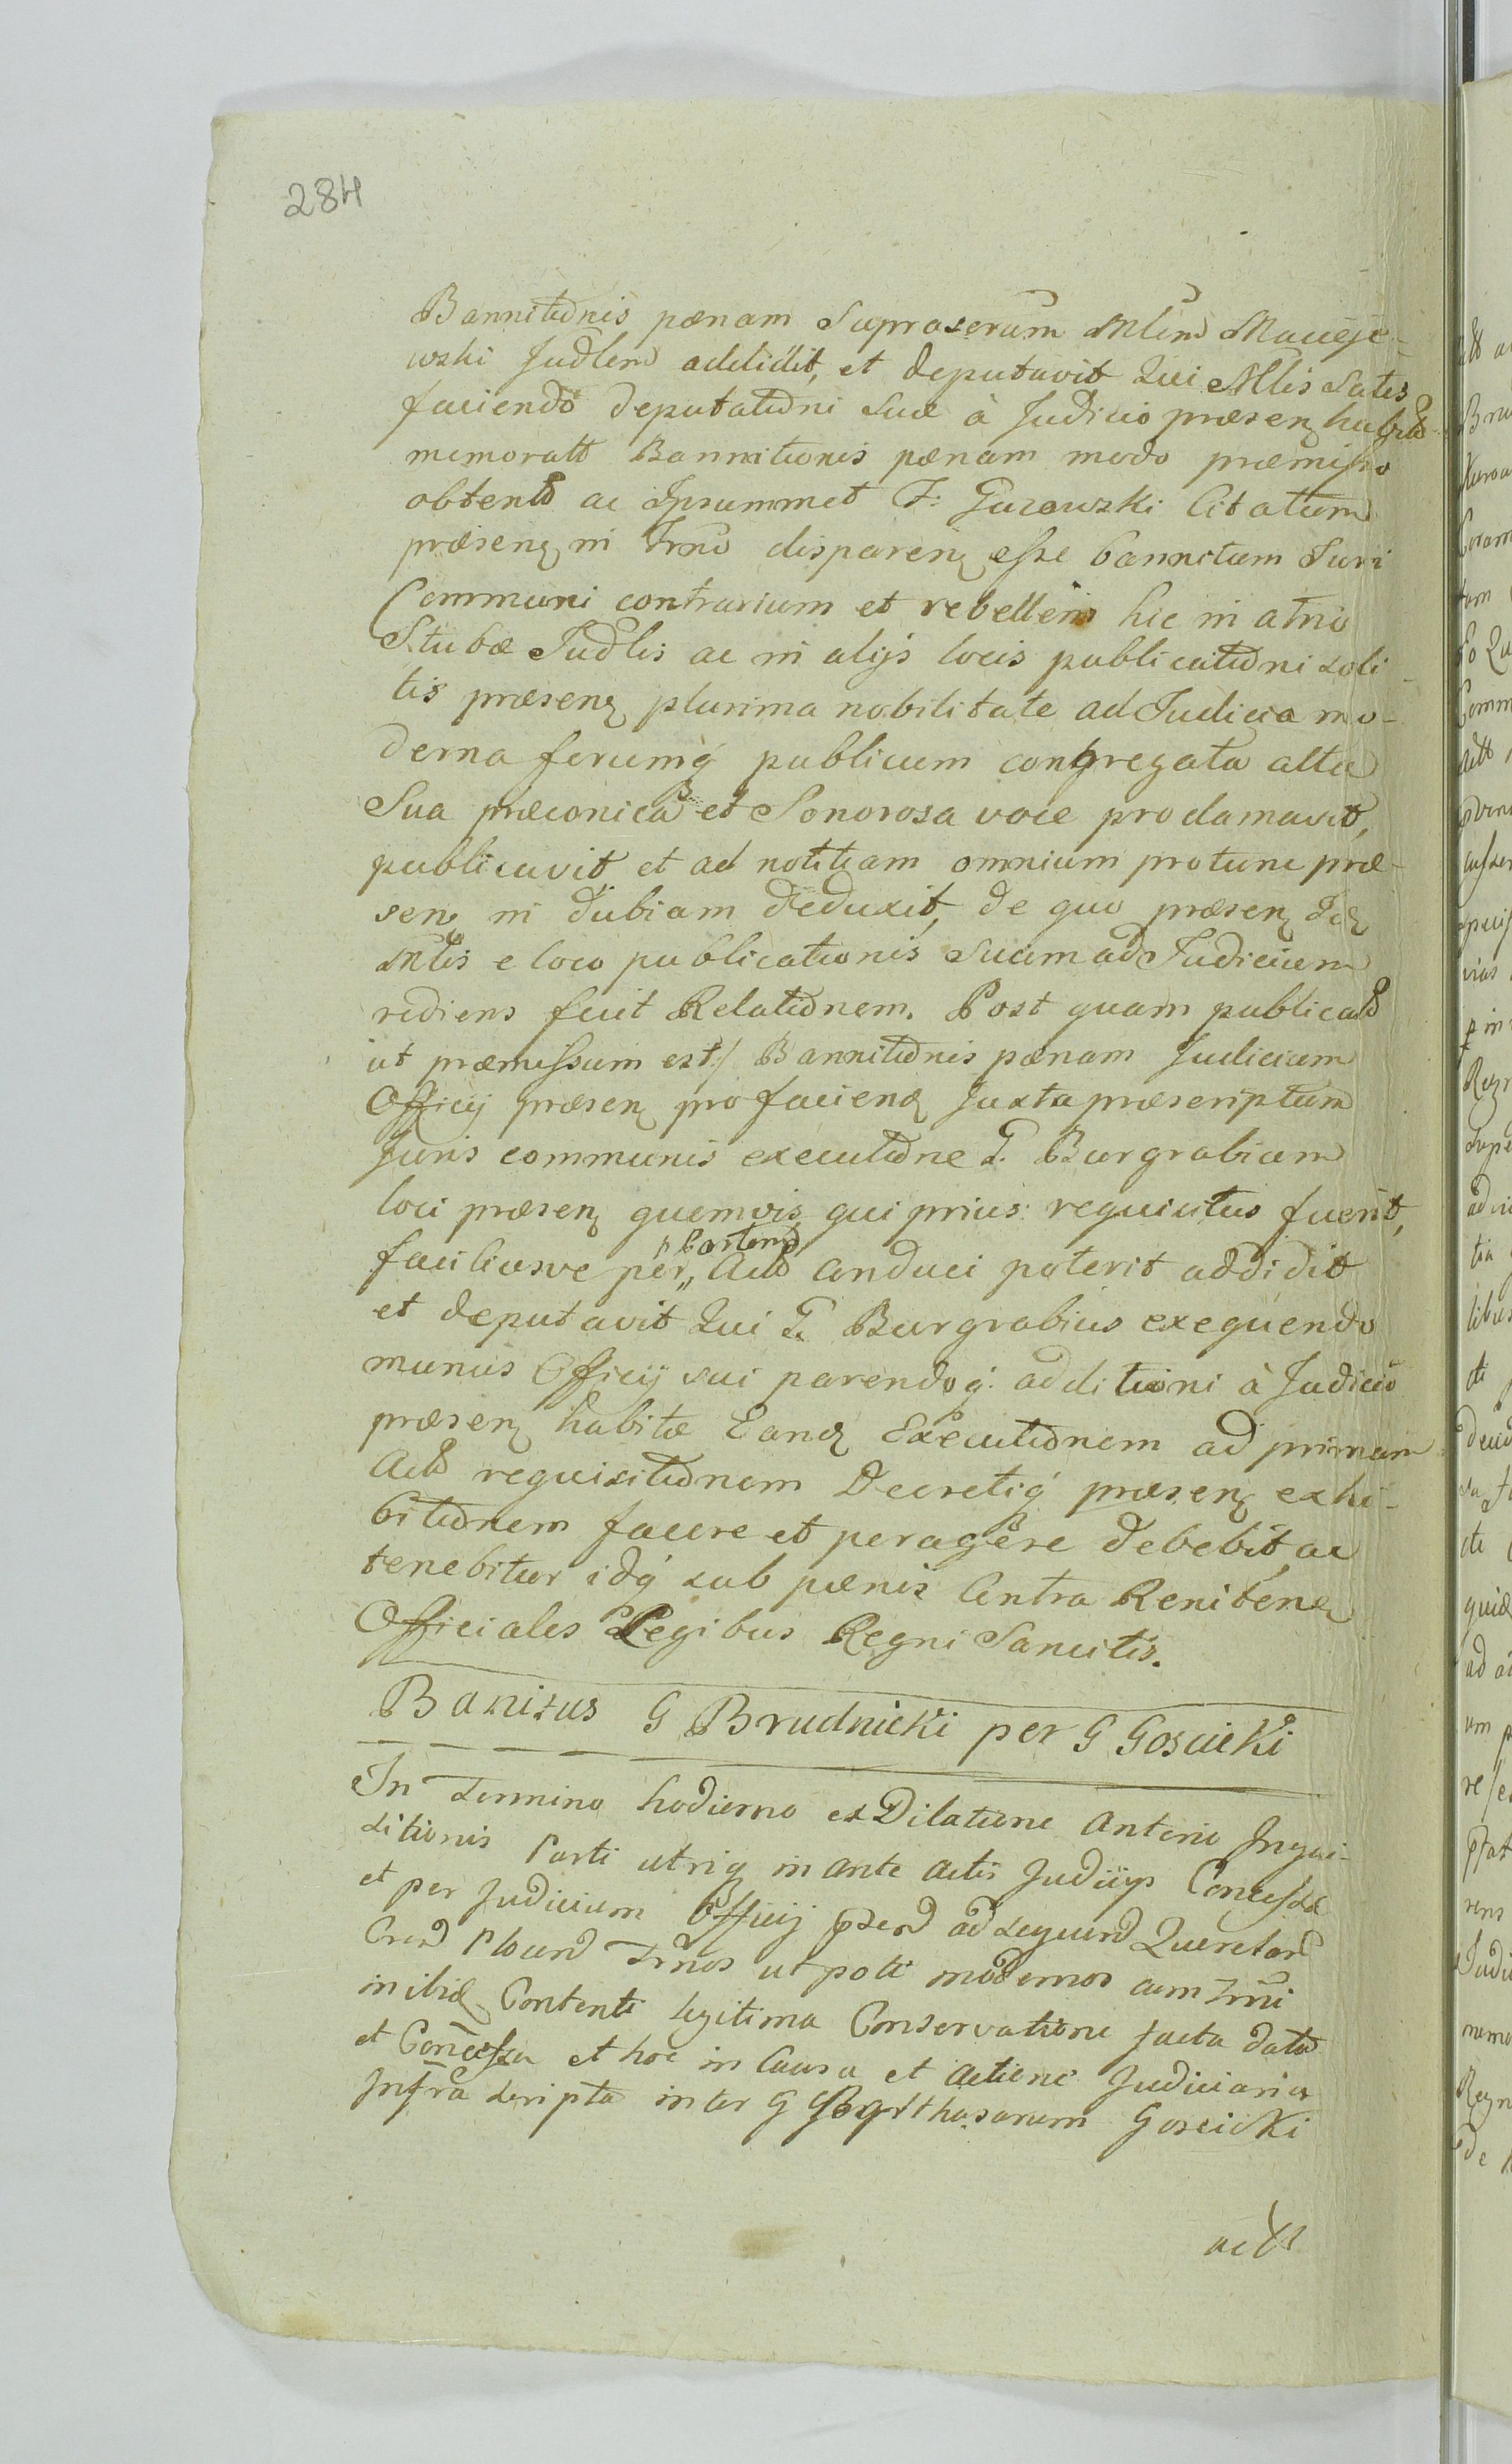 284
Bannitiõnis pœnam Supraserum Mlem Macieje-
wski Judlem addidit, et deputavit Qui Mlis Satis
faciendo deputatiõni Suæ à Judicio præsen habitæ
memoratt Bannitionis pœnam modo præmisso
obtent ac Ipsummet F: Gurowski Citatum
præsen in Trno disparen esse bannitum Juri
Communi contrarium et rebellem hic in atrio
Stubæ Judlis ac in alijs locis publicatiõni soli-
tis præsen plurima nobilitate ad Judicia mo-
derna forumq publicum congregata alta
Sua præconica et Sonorosa voce proclamavit,
publicavit et ad notitiam omnium protunc præ-
sen in dubiam deduxit, de quo præsen Id
Mlis e loco publicationis Suam ad Judicium
rediens fecit Relatiõnem. Post quam publicatt
ut præmissum est/ Bannitiõnis pœnam Judicium
Officij præsen pro facien Juxta præscriptum
Juris communis executiõne G. Burgrabium
loci præsen quemvis qui prius requisitus fuerit,
p Partem
faciliusve per,, Act conduci poterit addidit
et deputavit Qui G. Burgrabius exequendo
munus Officij sui parendoq additioni à Judicio
præsen habitæ Eand Executiõnem ad primam
Act requisitiõnem Decretiq præsen exhi-
bitiõnem facere et peragere debebit ac
tenebitur idq sub pœnis Contra Reniten
Officiales Legibus Regni Sancitis.
Banitus G Brudnicki per G Goscicki
In Termino hodierno ex Dilatione Anterio Inqui-
sitionis Parti utriq in ante actis Judiciis Concessa
et per Judicium Officij præsen ad Sequend Querelar
Crim Trnos ut poti modernos cum Trni
inibiq Contenti legitima Conservatione facta data
et Concessa et hoc in Causa et Actione Judiciaria
Infra scripta inter G Balthasarum Goscicki
act